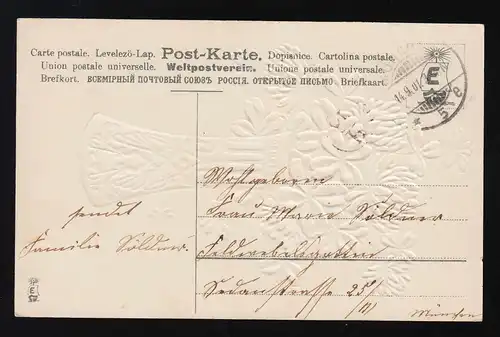 Carte postale. Levelező-Lap. Post-Karte. Dopisnice. Cartolina postale.
Union postale universelle. Weltpostverein. Unione postale universale.
Brefkort. ВСЕМІРНЫЙ ПОЧТОВЫЙ СОЮЗЪ РОССІЯ. ОТКРЫТОЕ ПИСЬМО Briefkaart.
E
14.9.07
5
Wohlgeboren
sendet
Frau Marie Söldner
Familie Söldner.
Feldwebelsgattin
Sedanstrasse 25/
III
München
E